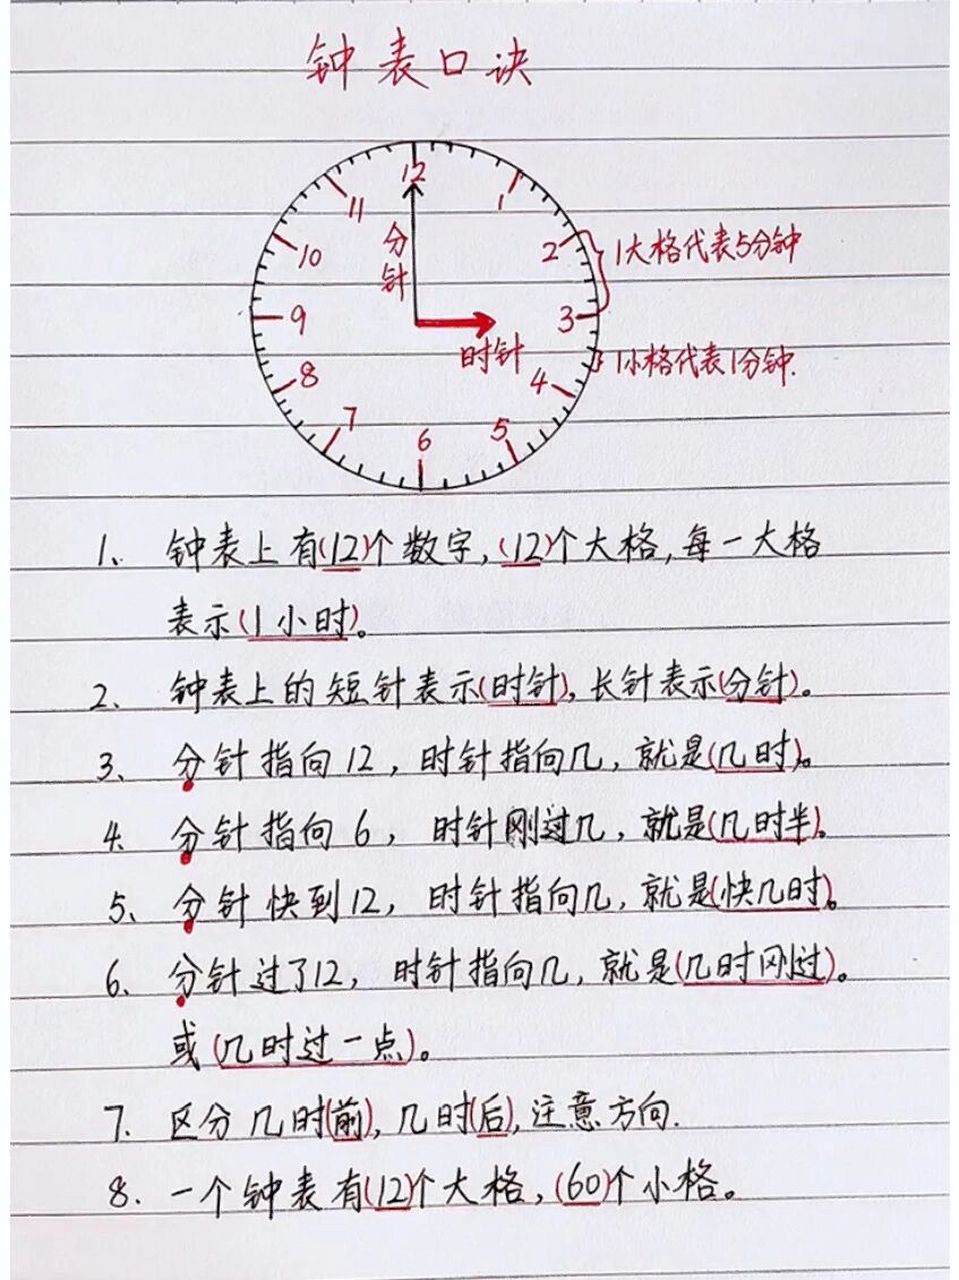 钟表口诀
12
11
1
分针
10
2
1大格代表5分钟
9
3
时针
1小格代表1分钟.
8
4
7
5
6
1、钟表上有(12)个数字,(12)个大格,每一大格
表示(1小时)。
2、钟表上的短针表示(时针),长针表示(分针)。
3、分针指向12,时针指向几,就是(几时)。
4、分针指向6,时针刚过几,就是(几时半)。
5、分针快到12,时针指向几,就是(快几时)。
6、分针过了12,时针指向几,就是(几时刚过)。
或(几时过一点)。
7、区分几时(前),几时(后),注意方向.
8、一个钟表有(12)个大格,(60)个小格。